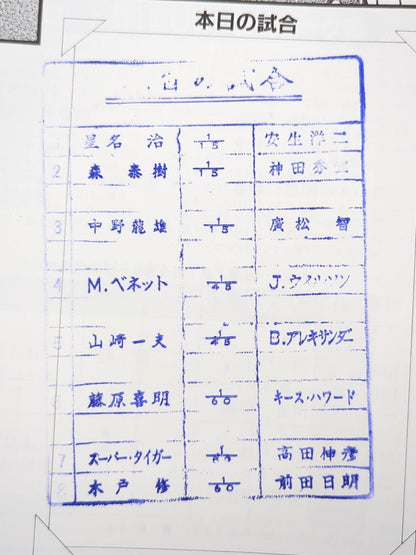 本日の試合
日の試合
1 星名 治 1/15 安生洋二
2 森 泰樹 1/15
3 中野龍雄 1/15 廣松 智
4 M.ベネット 1/45
5 山崎一夫 1/45 B.アレキサンダー
6 藤原喜明 1/60 キース・ハワード
7 スーパー・タイガー 高田伸彦
8 木戸 修 1/60 前田日明